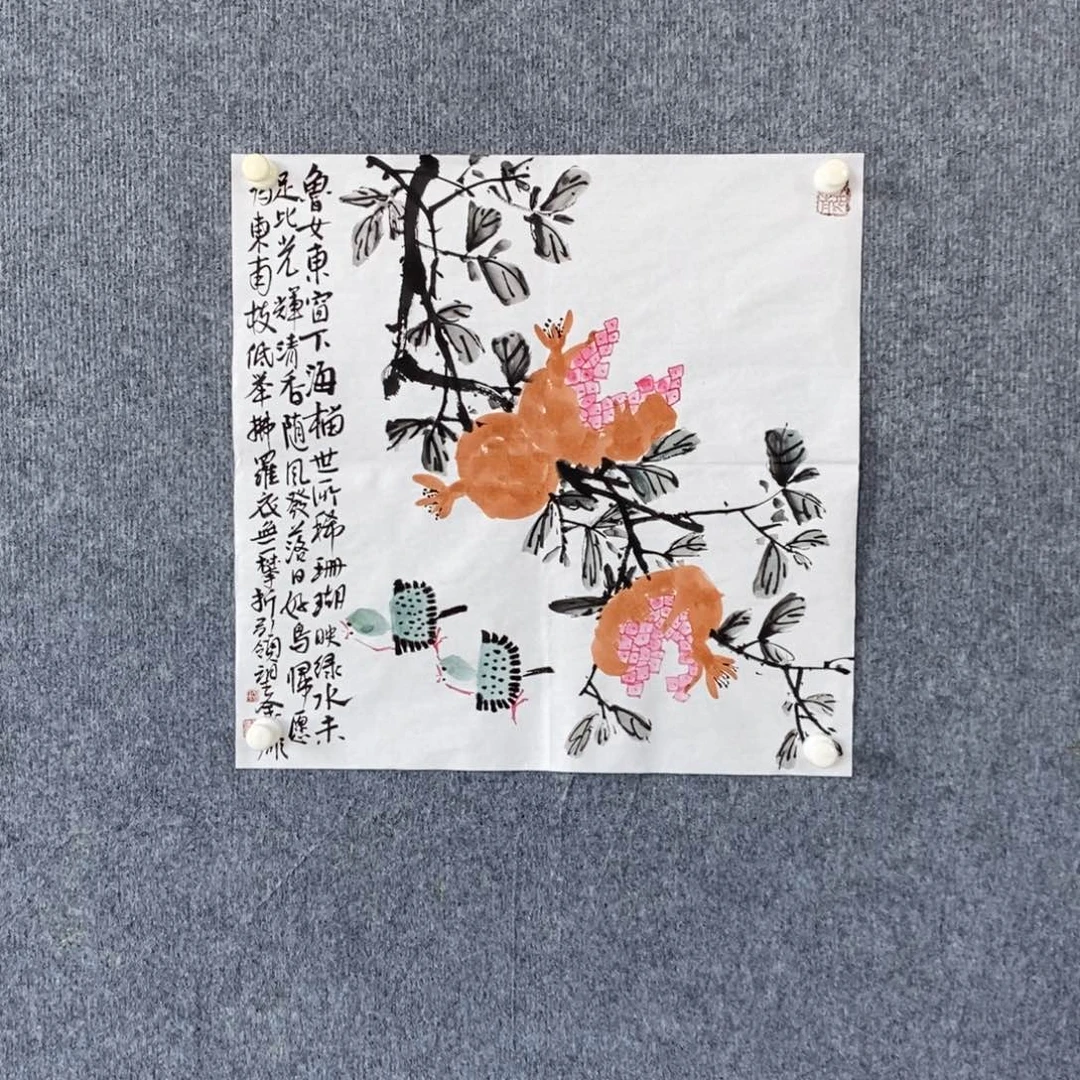 魯女東窗下海榴世所稀珊瑚映绿水未
足比光輝清香随風發落日好鳥歸愿
為東南枝低举拂羅衣無攀折引領望金